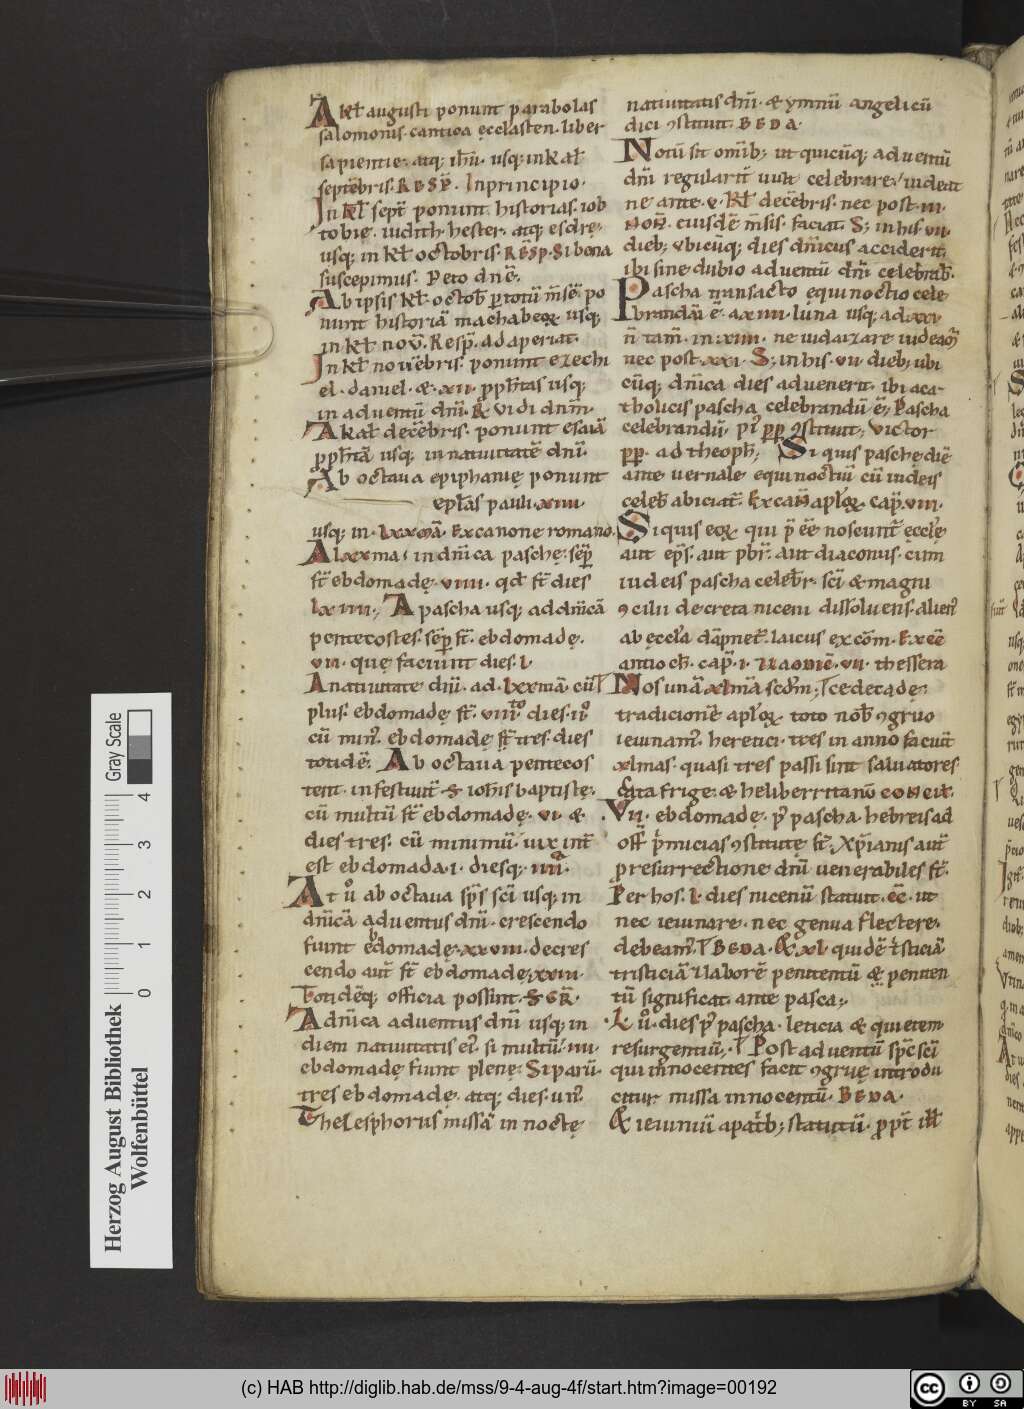 A kl̄ augusti ponunt parabolas
salomonis. cantica ęcclasten. liber
sapientie. atq; ih̄u. usq; in kal̄
septēbris. RESP̄. In principio.
In kl̄ sept̄ ponunt historias. iob
tobię. iudith. hester. atq; esdrę.
usq; in kl̄ octobris. RESP. Si bona
suscepimus. Peto dn̄e.
Ab ipsis kl̄. octob̄ ꝑ totū m̄sē po
nunt historiā machabeoꝝ usq;
in kl̄ nov̄. Resp̄. adaperiat.
In kl̄ novēbris. ponunt ezechi
el. daniel. & xii. ꝓph̄tas usq;
in adventū dn̄i. R̄ Vidi dn̄m.
A kal̄ decēbris. ponunt esaiā
ꝓph̄tā usq; in nativitatē dn̄i.
Ab octava epiphanię ponunt
epl̄as pauli. xiiii
usq; in. lxxmā. Ex canone romano.
A lxxma. in dn̄ica paschę. sēp
st̄ ebdomadę. viiii. qd̄ st̄ dies
lxiiii. A pascha usq; ad dn̄icā
pentecostes. sēp st̄. ebdomadę.
vii. quę faciunt dies. l.
A nativitate dn̄i. ad. lxxmā. cū
plus. ebdomadę st̄. viiii. dies. ii.
cū min᷒. ebdomadę st̄ tres. dies
totidē. Ab octava pentecos
ten. in festivit̄ S ioh̄is baptistę.
cū multū st̄ ebdomadę. vi. &
dies tres. cū minimū. vix int̄
est ebdomada. i. diesq;. iiii.
At ů ab octava sp̄s sc̄i usq; in
dn̄icā adventus dn̄i. crescendo
fiunt ebdomadę. xxviiii. decres
cendo aut̄ st̄ ebdomadę xxiii
Totidēq; officia possint.
A dn̄ica adventus dn̄i usq; in
diem nativitatis ei᷒. si multū. iiii.
ebdomadę fiunt plenę. Si parū.
tres ebdomadę. atq; dies. un᷒.
Thelesphorus missā in noctę
nativitatis dn̄i. & ymnū angelicū
dici ꝯstituit. BEDA.
Notū sit omīb; ut quicūq; adventū
dn̄i regularit̄ vult celebrare. videat
ne ante. v. kl̄ decēbris. nec post. iii.
noñ. eiusdē m̄sis. faciat. S; in his. vii.
dieb; ubicūq; dies dn̄icus acciderit.
ibi sine dubio adventū dn̄i celebrab̄.
Pascha transacto ęquinoctio cele
brandū ē. a xiiii. luna usq; ad xxi
n̄ tam̄. in. xiiii. ne iudaizare iudeoꝝ
nec post. xxi. S; in his. vii. dieb; ubi
cūq; dn̄ica dies advenerit. ibi aca
tholicis pascha celebrandū ē; Pascha
celebrandū. pi᷒ pp ꝯstituit; Victor
pp. ad theoph̄; Si quis paschę diē
ante vernale ęquinoctiū cū iudeis
celeb̄ abiciat̄. Ex can̄ apl̄oꝝ. cap̄. viii.
Si quis eoꝝ qui p̄ eē noscunt̄ ęcclę
aut ep̄s. aut pbr̄. aut diaconus. cum
iudeis pascha celebr̄. sc̄i & magni
ꝯcilii decreta niceni dissolvens. alien᷒
ab ęccl̄a dāpnet̄. laicus excōm.
antioch̄. cap̄. i. vii. thessera
Nos unā xlmā scd̄m
tradicionē apl̄oꝝ toto nob̄ ꝯgruo
ieiunam᷒. heretici. tres in anno faciūt
xlmas. quasi tres passi sint salvatores
Cata frige. & heliberritanū CONCIL̄.
Vii. ebdomadę. p᷒ pascha hebreis ad
off̄ p̄micias ꝯstitutę st̄; Xp̄ianis aut̄
ꝓ resurrectione dn̄i venerabiles st̄.
Per hos. l. dies nicenū statuit. ēē. ut
nec ieiunare. nec genua flectere.
debeam᷒. BEDA. & xl. quidē
tristiciā 7 laborē penitentū & peniten
tū significat. ante pasca;
L. ů. dies p᷒ pascha. leticia & quietem
resurgentiū;. Post adventū sp̄c sc̄i
qui innocentes facit ꝯgruę introdu
citur missa innocentū. BEDA.
& ieiuniū a patrib; statutū. ꝓpt̄ ill̄
(c) HAB http://diglib.hab.de/mss/9-4-aug-4f/start.htm?image=00192
Herzog August Bibliothek
Wolfenbüttel
Gray Scale
0 1 2 3 4
cc BY SA